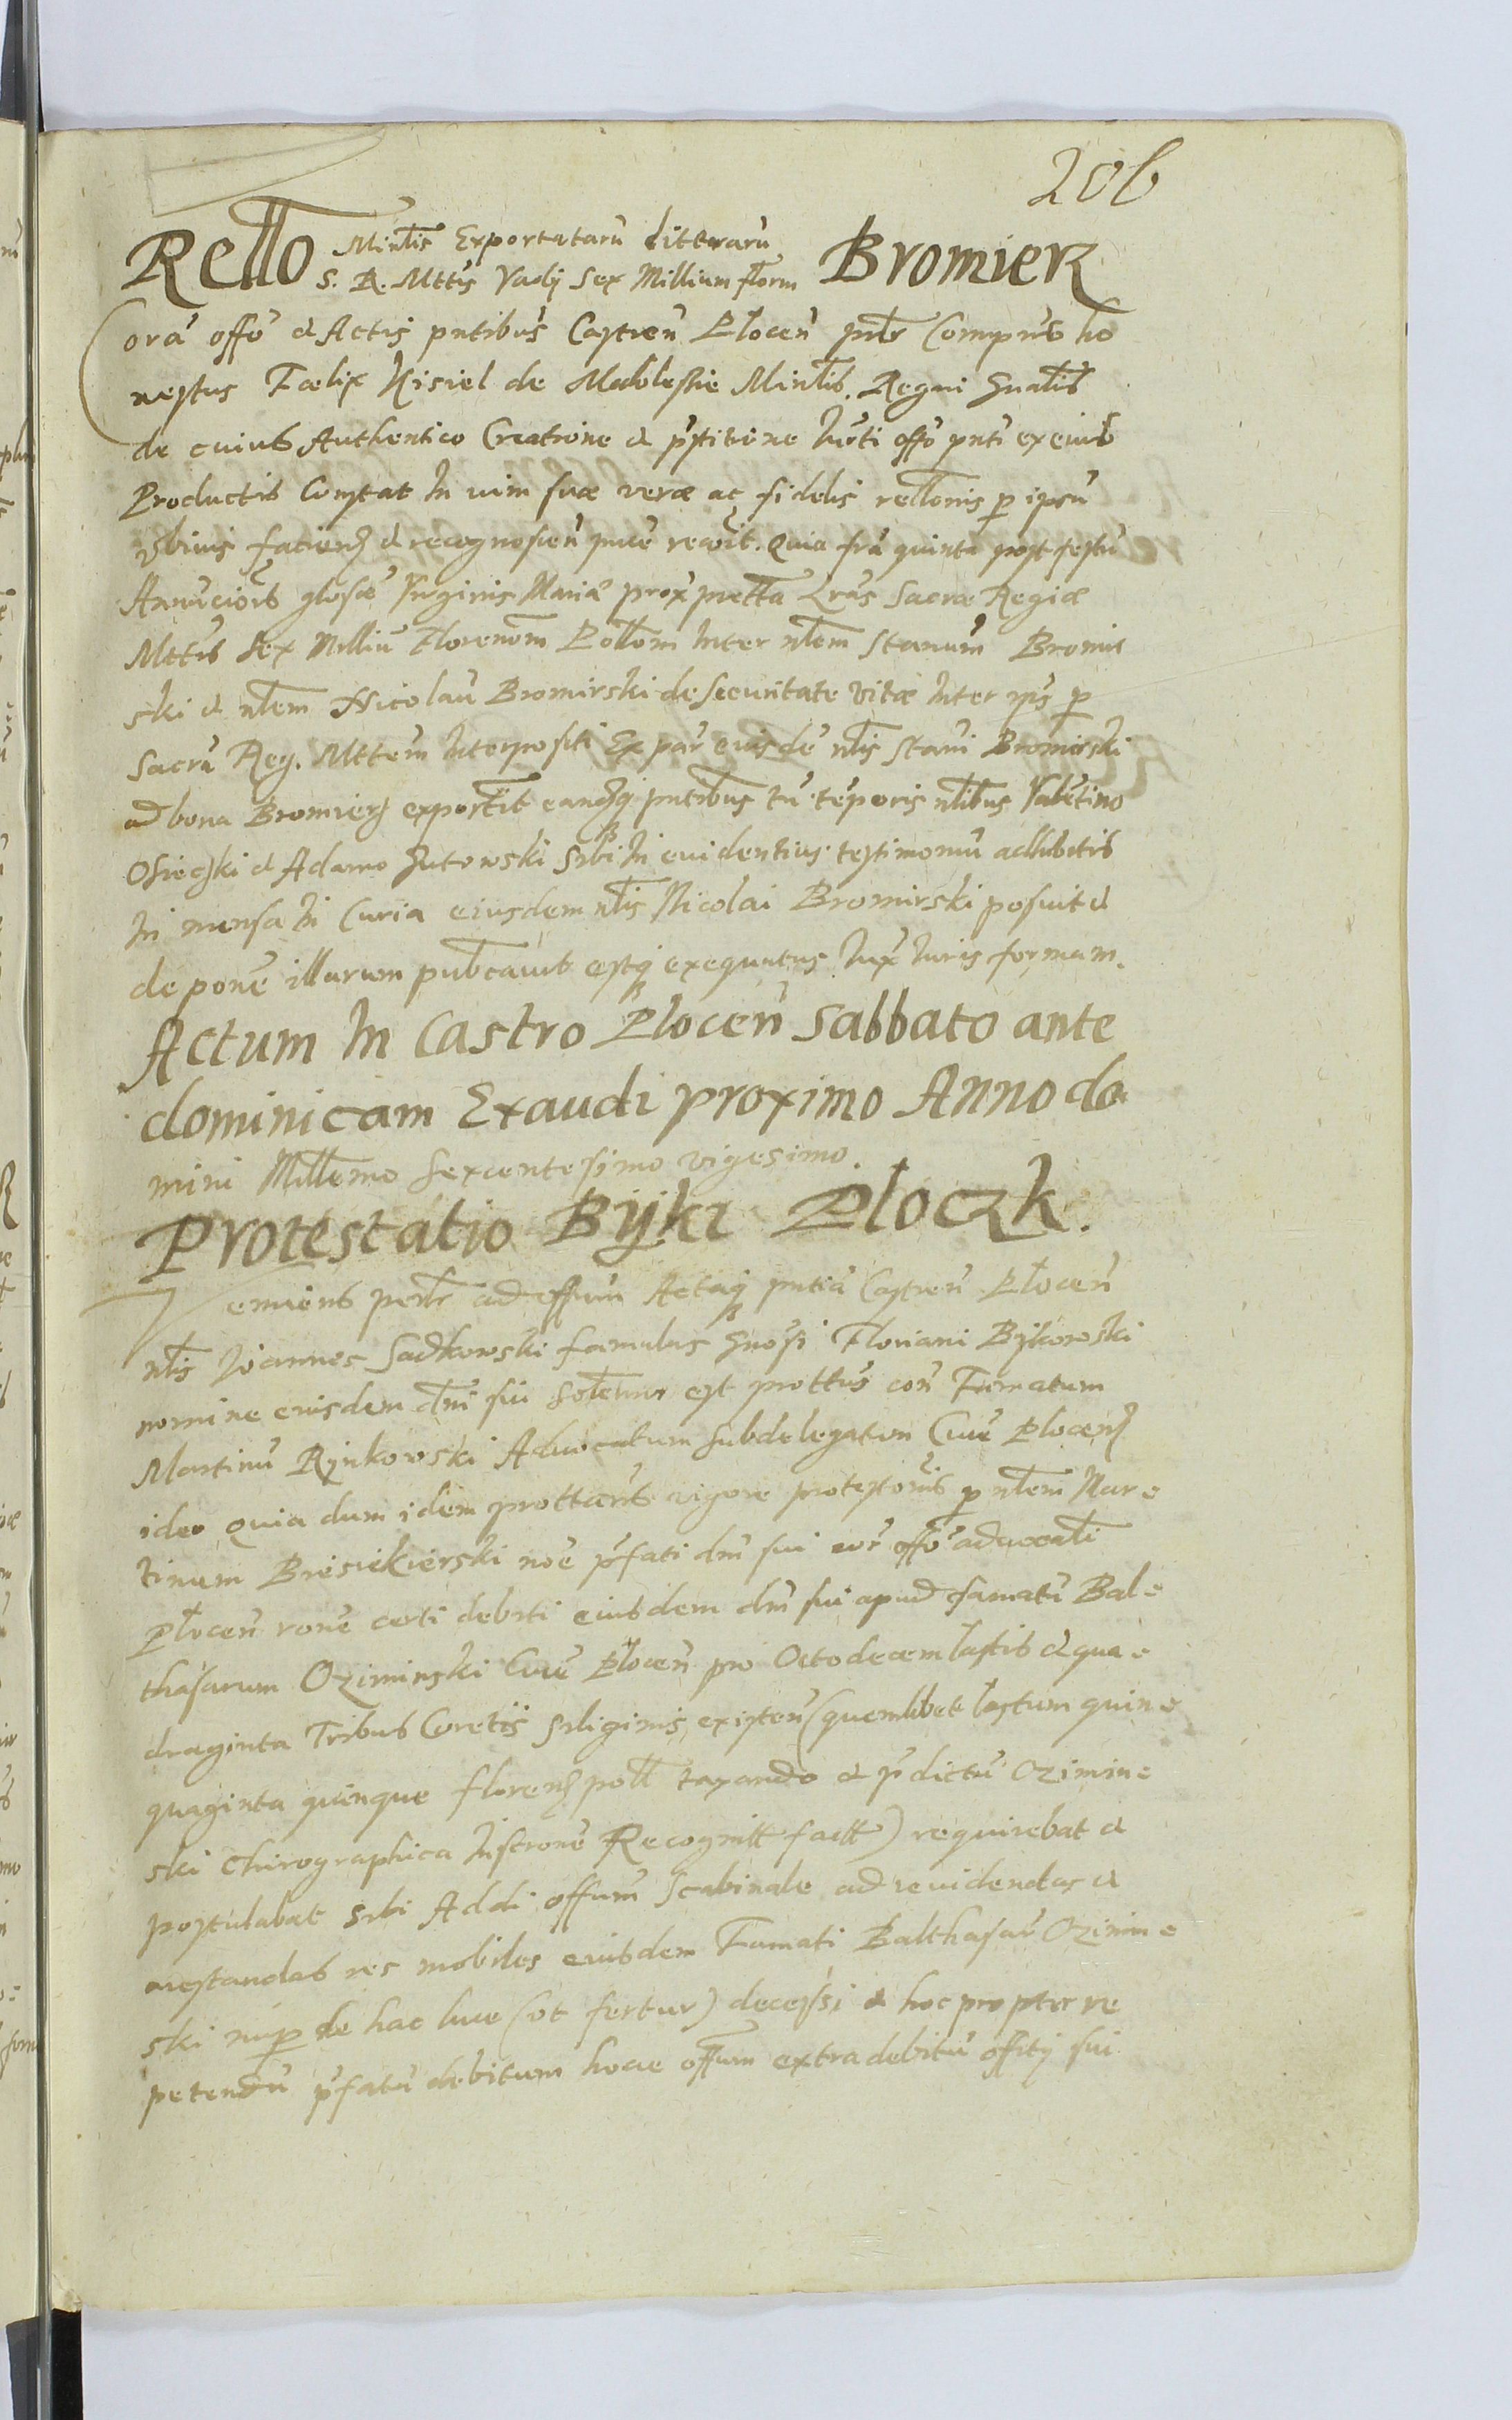 206
Rello Minlis Exportataru litteraru Bromierz
S. R. Mttis Vadij Sex Millium florn
Cora offo & Actis pntibus Castren Plocen prlr Comprns ho
nestus Faelix Kisiel de Minlis Regni Gnalis
de cuius Authentico Creatione & pstitione huic offo pnti ex eius
Productis Constat In vim suae verae ac fidelis rellonis p ipsu
facien & recognoscen recoit. Quia fra quinta post festu
Annucionis glosae Virginis Mariae prox pretta Lras Sacrae Regiae
Mttis Sex Milliu Florenom Pollom Inter nlem Stanum Bromir
ski & nlem Nicolau Bromirski de securitate vitae Inter ipsos p
Sacra Reg. Mttem Interpositi Ex par eiusde nlis Stani Bromirski
ad bona Bromierz exportit easq pntibus tu teporis nlibus Valetino
Osieczki & Adamo Gutowski Sibi In evidentius testimoniu adhibitis
In mensa In Curia eiusdem nlis Nicolai Bromirski posuit &
de pone illarum publcavit estq exequutus Iux Iuris formam.
Actum In Castro Plocen Sabbato ante
dominicam Exaudi proximo Anno do
mini Millemo Sexcentesimo vigesimo.
Protestatio Bijki Ploczk.
Veniens perlr ad offium Actaq pntia Castren Plocen
nlis Joannes Sadkowski famulus Gnosi Floriani Bijkowski
nomine eiusdem dni sui Solemr est prottus con Famatum
Martinu Rijnkowski Advocatum subdelegatum Cive Plocen
ideo quia dum idem prottans vigore protestonis p nlem Mar-
tinum Briesiekierski noe pfati dni sui cor offo advocali
Plocen rone certi debiti eiusdem dni sui apud famatu Bal-
thasarum Oziminski Cive Plocen pro Octodecem lastis & qua-
draginta Tribus Coretis Siliginis existen (quemlibet lastum quin-
quaginta quinque floren poll taxando & pdictu Ozimin-
ski Chirographica Inscrone Recognitt factt) requirebat &
postulabat sibi Addi offium Scabinale ad revidendas &
arestandas res mobiles eiusdem Famati Balthasar Ozimin-
ski nup de hac luce (ut fertur) decessi & hoc propter re
petendu pfatu debitum hocce offium extra debitu offity sui